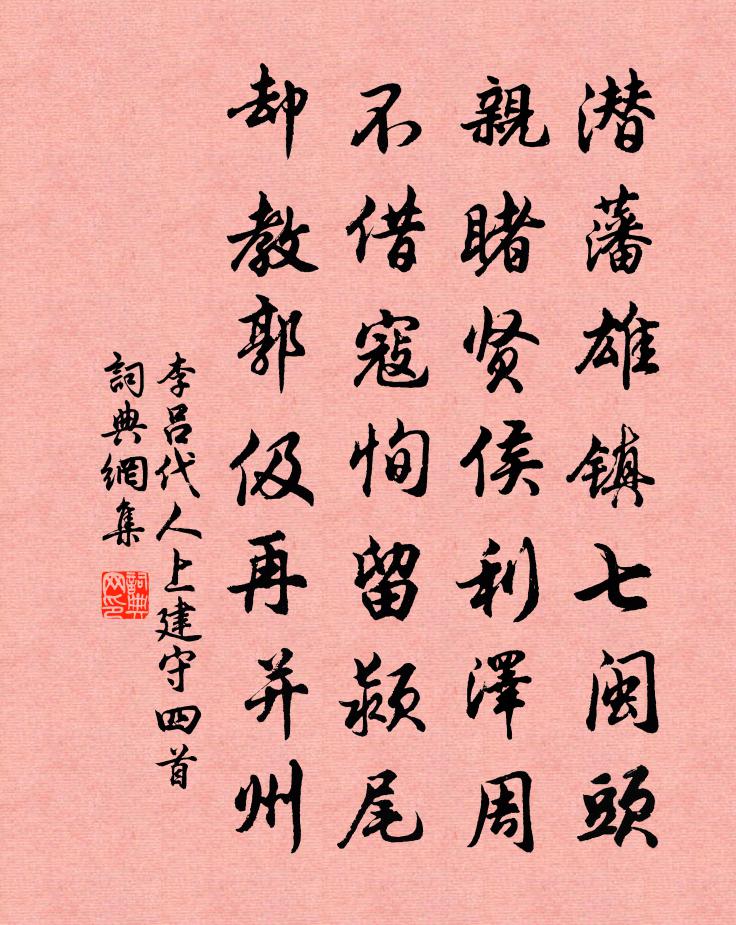 潜藩雄镇七闽頭
親睹贤侯利澤周
不借寇恂留颍尾
却教郭伋再并州
李吕代人上建守四首
詞典網集
詞典网印